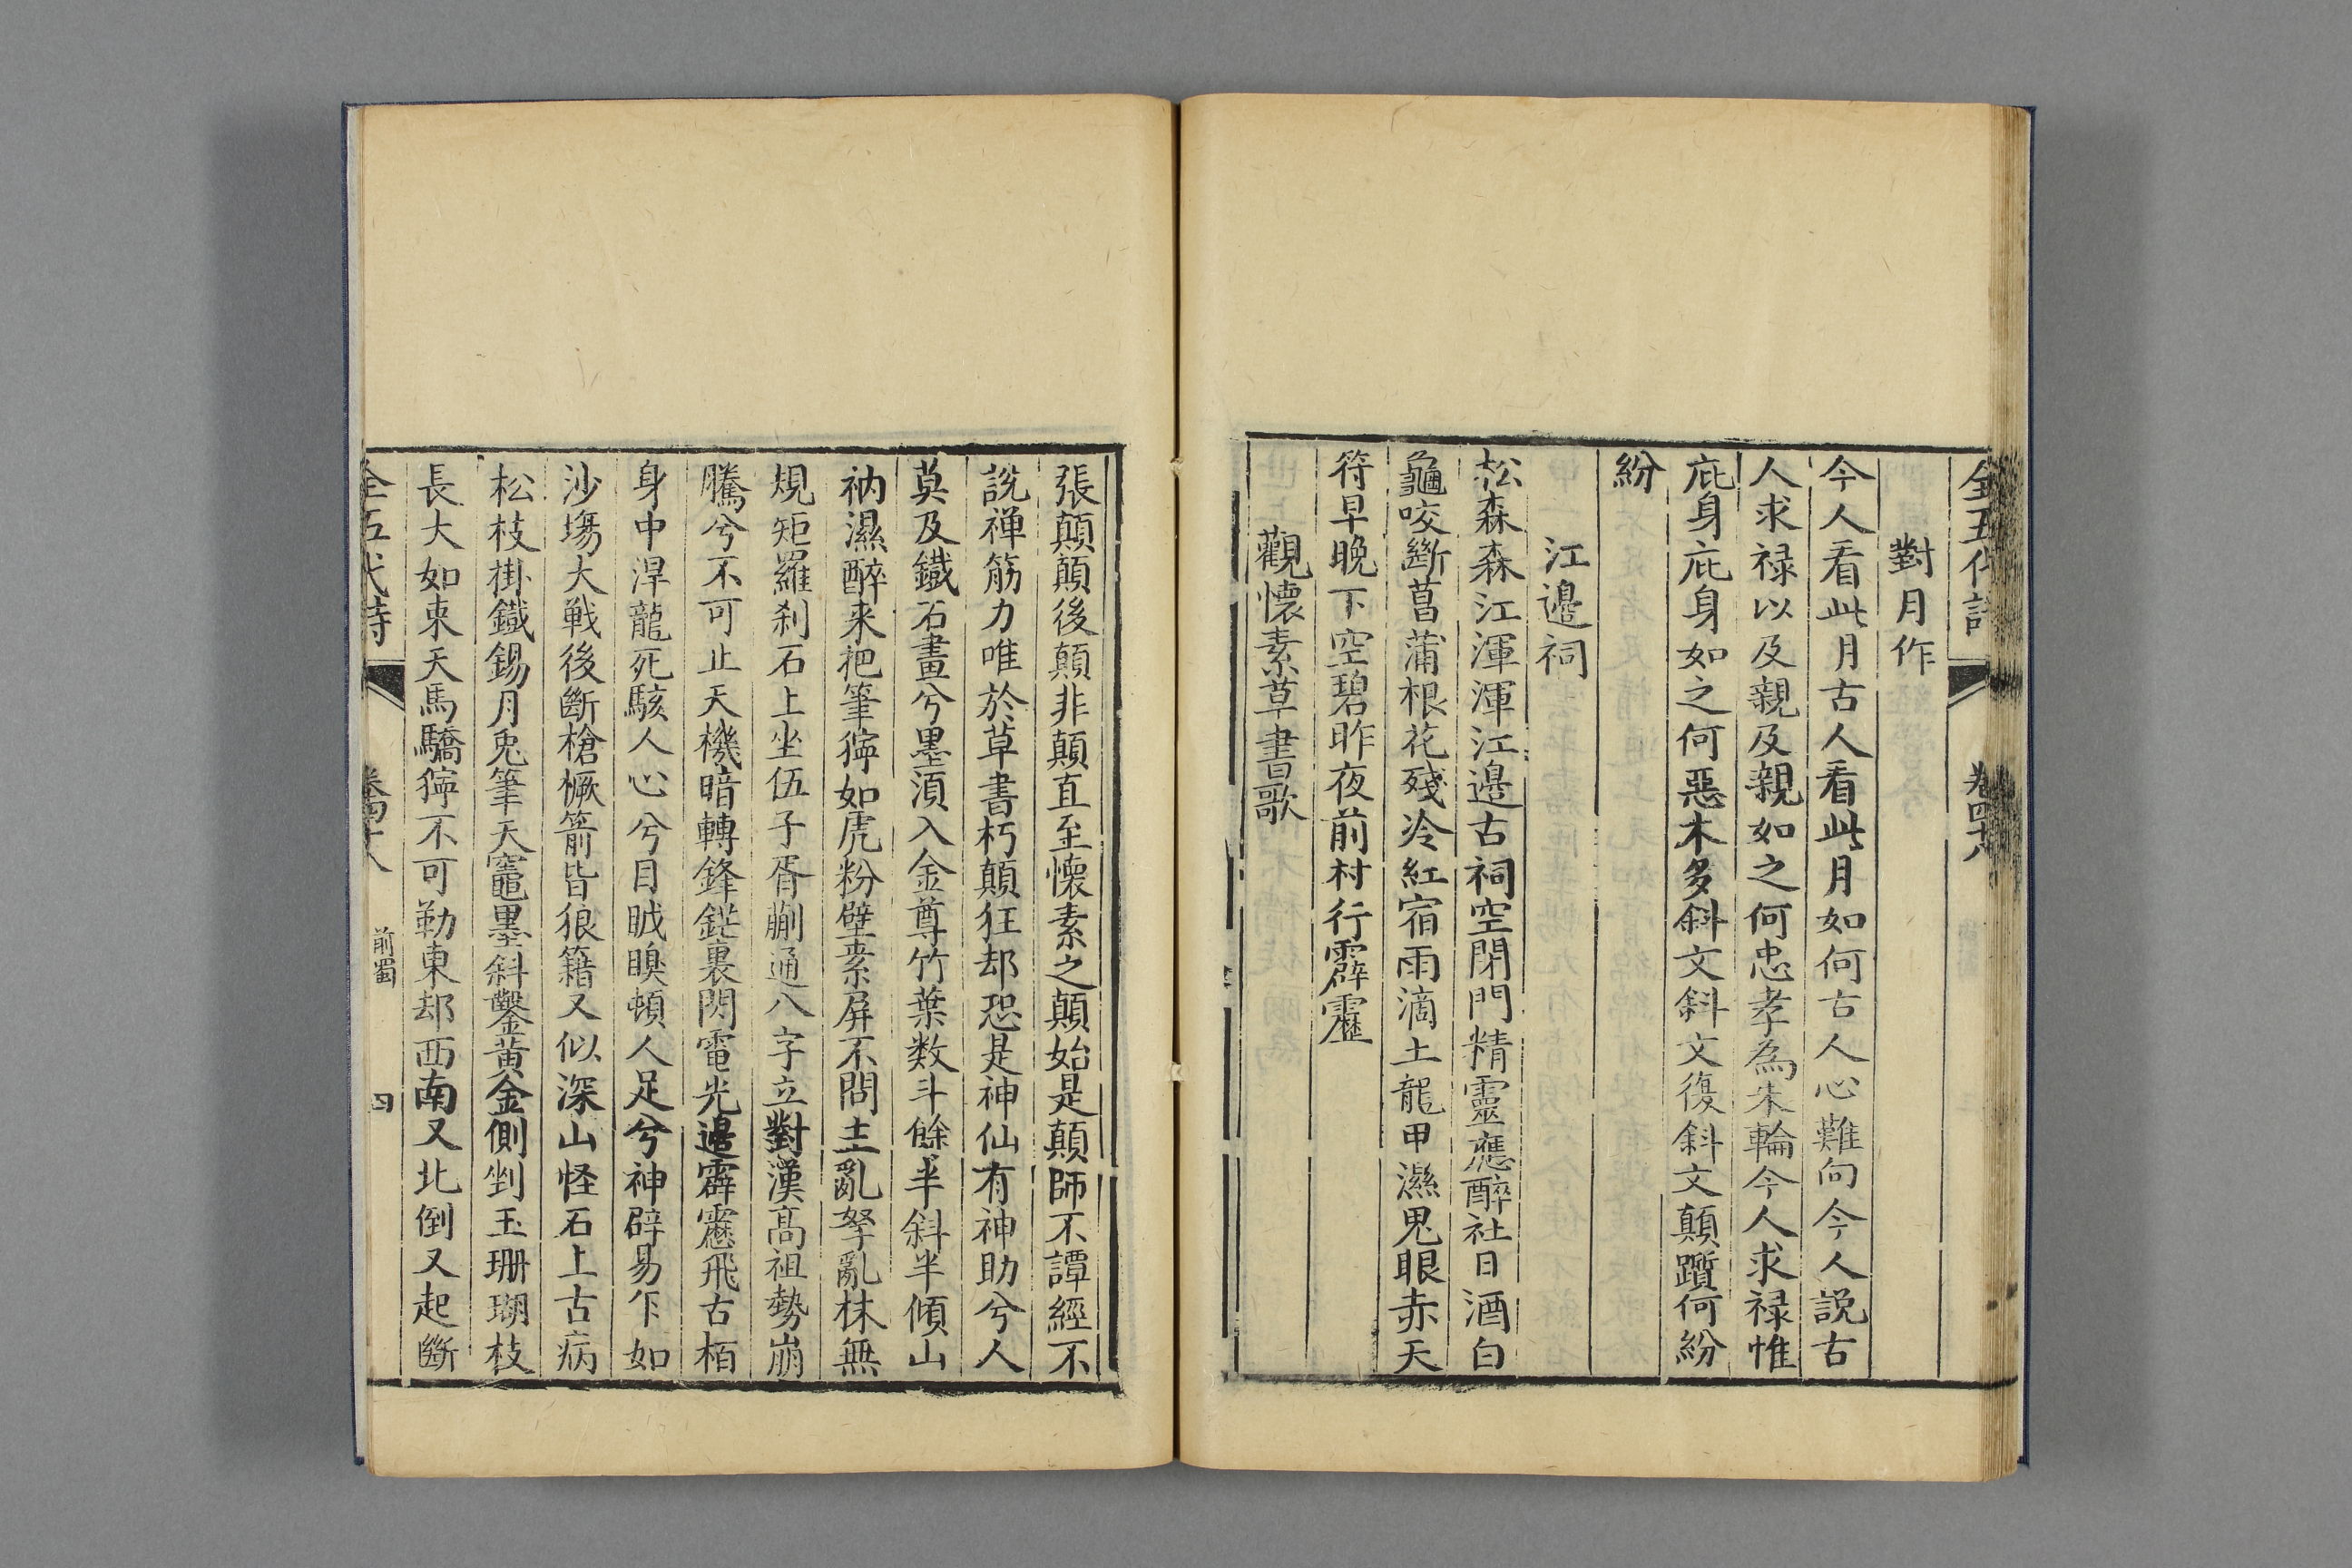 全五代詩
卷四十八
對月作
今人看此月古人看此月如何古人心難向今人說古
人求禄以及親及親如之何忠孝為朱輪今人求禄惟
庇身庇身如之何惡木多斜文斜文復斜文顛躓何紛
紛
江邊祠
松森森江渾渾江邊古祠空閉門精靈應醉社日酒白
龜咬斷菖蒲根花殘冷紅宿雨滴土龍甲濕鬼眼赤天
符早晚下空碧昨夜前村行霹靂
觀懷素草書歌
張顛顛後顛非顛直至懷素之顛始是顛師不譚經不
說禅筋力唯於草書朽顛狂却恐是神仙有神助兮人
莫及鐵石畫兮墨湏入金尊竹葉数斗餘半斜半傾山
衲濕醉来把筆獰如虎粉壁素屏不問主亂拏亂抹無
規矩羅刹石上坐伍子胥蒯通八字立對漢高祖勢崩
騰兮不可止天機暗轉鋒鋩裏閃電光邊霹靂飛古栢
身中㴋龍死駭人心兮目眓瞁頓人足兮神辟易乍如
沙塲大戰後斷槍橛箭皆狼籍又似深山怪石上古病
松枝掛鐵錫月兎筆天竈墨斜鑿黄金側剉玉珊瑚枝
長大如束天馬驕獰不可勒東却西南又北倒又起斷
全五代詩
卷四十八
前蜀
四